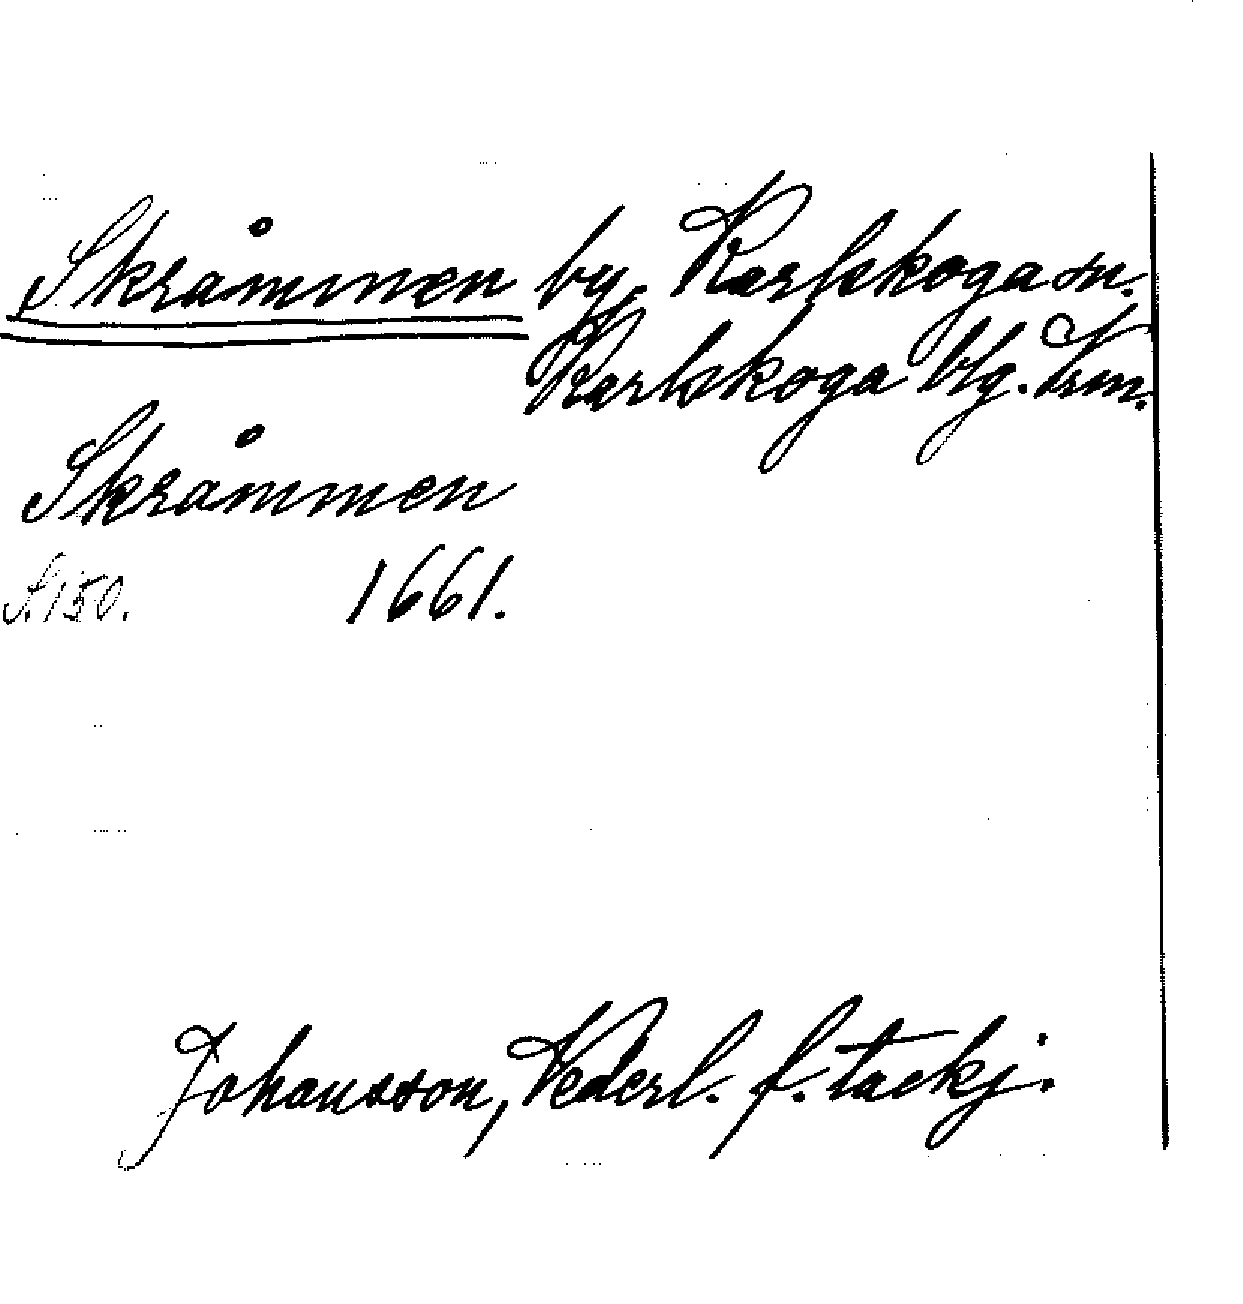 Skråmmen by, Karlskoga sn.
Karlskoga blg. Vrm.
Skråmmen
S. 150. 1661.
Johansson, Vederl. f. tackj.